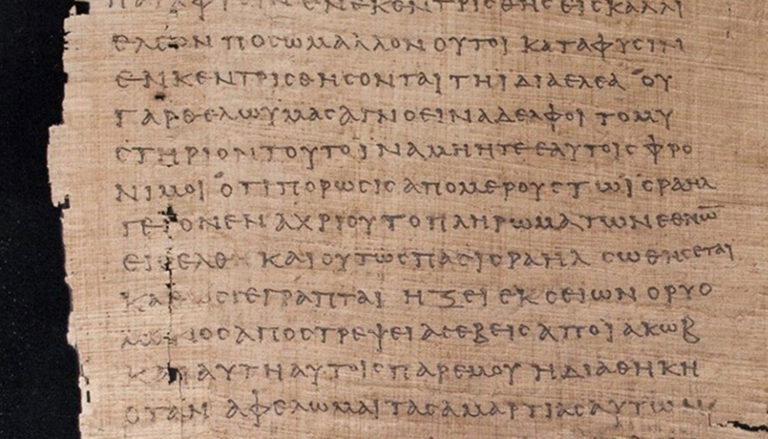 ΕΝΕΚΕΝΤΡΙΣΘΗΣ ΕΙΣ ΚΑΛΛΙ
ΕΛΕΟΝ ΠΟΣΩ ΜΑΛΛΟΝ ΟΥΤΟΙ ΚΑΤΑ ΦΥΣΙΝ
ΕΝΚΕΝΤΡΙΣΘΗΣΟΝΤΑΙ ΤΗΙ ΙΔΙΑ ΕΛΕΑ ΟΥ
ΓΑΡ ΘΕΛΩ ΥΜΑΣ ΑΓΝΟΕΙΝ ΑΔΕΛΦΟΙ ΤΟ ΜΥ
ΣΤΗΡΙΟΝ ΤΟΥΤΟ ΙΝΑ ΜΗ ΗΤΕ ΕΑΥΤΟΙΣ ΦΡΟ
ΝΙΜΟΙ ΟΤΙ ΠΟΡΩΣΙΣ ΑΠΟ ΜΕΡΟΥΣ ΤΩ ΙΣΡΑΗΛ
ΓΕΓΟΝΕΝ ΑΧΡΙ ΟΥ ΤΟ ΠΛΗΡΩΜΑ ΤΩΝ ΕΘΝΩ̅
ΕΙΣΕΛΘ ΚΑΙ ΟΥΤΩΣ ΠΑΣ ΙΣΡΑΗΛ ΣΩΘΗΣΕΤΑΙ
ΓΕΓΡΑΠΤΑΙ ΗΞΕΙ ΕΚ ΣΕΙΩΝ Ο ΡΥΟ
ΑΠΟΣΤΡΕΨΕΙ ΑΣΕΒΕΙΣ ΑΠΟ ΙΑΚΩΒ
ΚΑΙ ΑΥΤΗ ΑΥΤΟΙΣ ΠΑΡ ΕΜΟΥ Η ΔΙΑΘΗΚΗ
ΟΤΑΝ ΑΦΕΛΩΜΑΙ ΤΑΣ ΑΜΑΡΤΙΑΣ ΑΥΤΩΝ